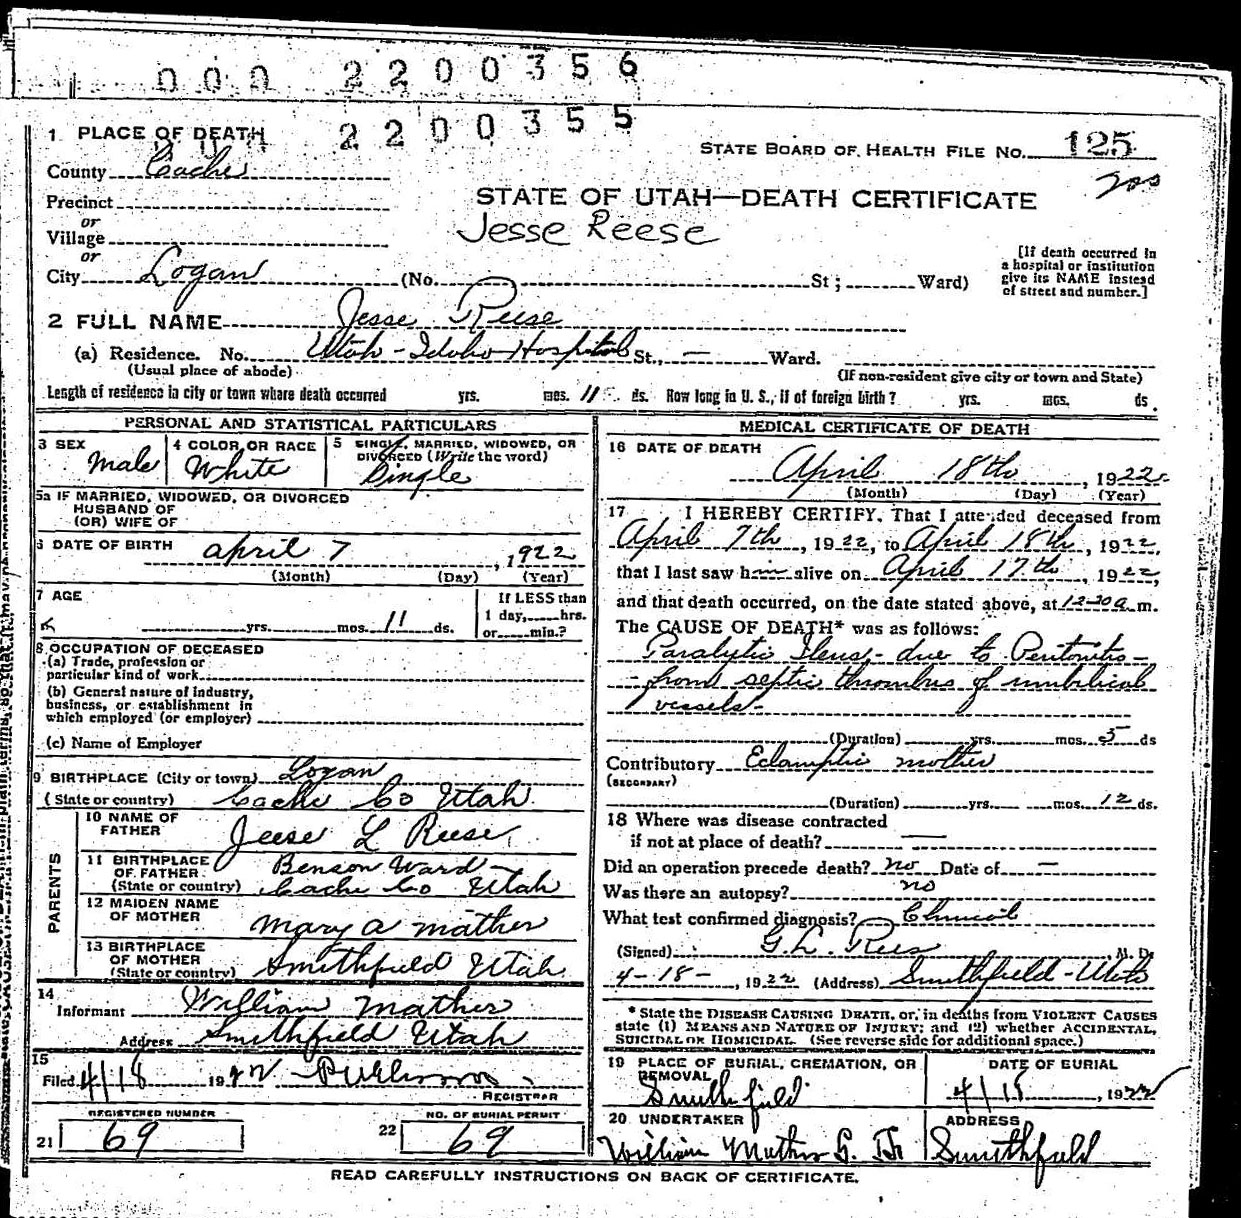 000 2200356
2200355
1 PLACE OF DEATH
STATE BOARD OF HEALTH FILE NO. 125
County Cache
200
Precinct
STATE OF UTAH—DEATH CERTIFICATE
or
Jesse Reese
Village
or
City Logan (No. St; Ward)
[If death occurred in
a hospital or institution
give its NAME instead
of street and number.]
2 FULL NAME Jesse Reese
(a) Residence. No. Utah-Idaho Hospital St., — Ward.
(Usual place of abode)
(If non-resident give city or town and State)
Length of residence in city or town where death occurred yrs. mos. 11 ds. How long in U. S., if of foreign birth? yrs. mos. ds.
PERSONAL AND STATISTICAL PARTICULARS
3 SEX Male
4 COLOR OR RACE White
5 SINGLE, MARRIED, WIDOWED, OR
DIVORCED (Write the word)
Single
5a IF MARRIED, WIDOWED, OR DIVORCED
HUSBAND OF
(OR) WIFE OF
6 DATE OF BIRTH April 7, 1922
(Month) (Day) (Year)
7 AGE
yrs. mos. 11 ds.
If LESS than
1 day, hrs.
or min.?
8 OCCUPATION OF DECEASED
(a) Trade, profession or
particular kind of work
(b) General nature of industry,
business, or establishment in
which employed (or employer)
(c) Name of Employer
9 BIRTHPLACE (City or town) Logan
(State or country) Cache Co Utah
PARENTS
10 NAME OF
FATHER Jesse L Reese
11 BIRTHPLACE
OF FATHER Benson Ward —
(State or country) Cache Co Utah
12 MAIDEN NAME
OF MOTHER Mary A Mather
13 BIRTHPLACE
OF MOTHER
(State or country) Smithfield Utah
14
Informant William Mather
Address Smithfield Utah
15
Filed 4/18 1922
REGISTRAR
REGISTERED NUMBER
21 69
NO. OF BURIAL PERMIT
22 69
MEDICAL CERTIFICATE OF DEATH
16 DATE OF DEATH
April 18th, 1922
(Month) (Day) (Year)
17 I HEREBY CERTIFY, That I attended deceased from
April 7th, 1922, to April 18th, 1922,
that I last saw him alive on April 17th, 1922,
and that death occurred, on the date stated above, at 12-30 a.m.
The CAUSE OF DEATH* was as follows:
Paralytic Ileus,- due to Peritonitis -
- from septic thrombus of umbilical
vessels -
(Duration) yrs. mos. 5 ds
Contributory Eclamptic mother
(SECONDARY)
(Duration) yrs. mos. 12 ds.
18 Where was disease contracted
if not at place of death? —
Did an operation precede death? no Date of —
Was there an autopsy? no
What test confirmed diagnosis? Clinical
(Signed) G. L. Rees M. D.
4-18-, 1922 (Address) Smithfield-Utah
* State the DISEASE CAUSING DEATH, or, in deaths from VIOLENT CAUSES
state (1) MEANS AND NATURE OF INJURY; and (2) whether ACCIDENTAL,
SUICIDAL OR HOMICIDAL. (See reverse side for additional space.)
19 PLACE OF BURIAL, CREMATION, OR
REMOVAL
Smithfield
DATE OF BURIAL
4/18, 1922
20 UNDERTAKER
William Mather
ADDRESS
Smithfield
READ CAREFULLY INSTRUCTIONS ON BACK OF CERTIFICATE.